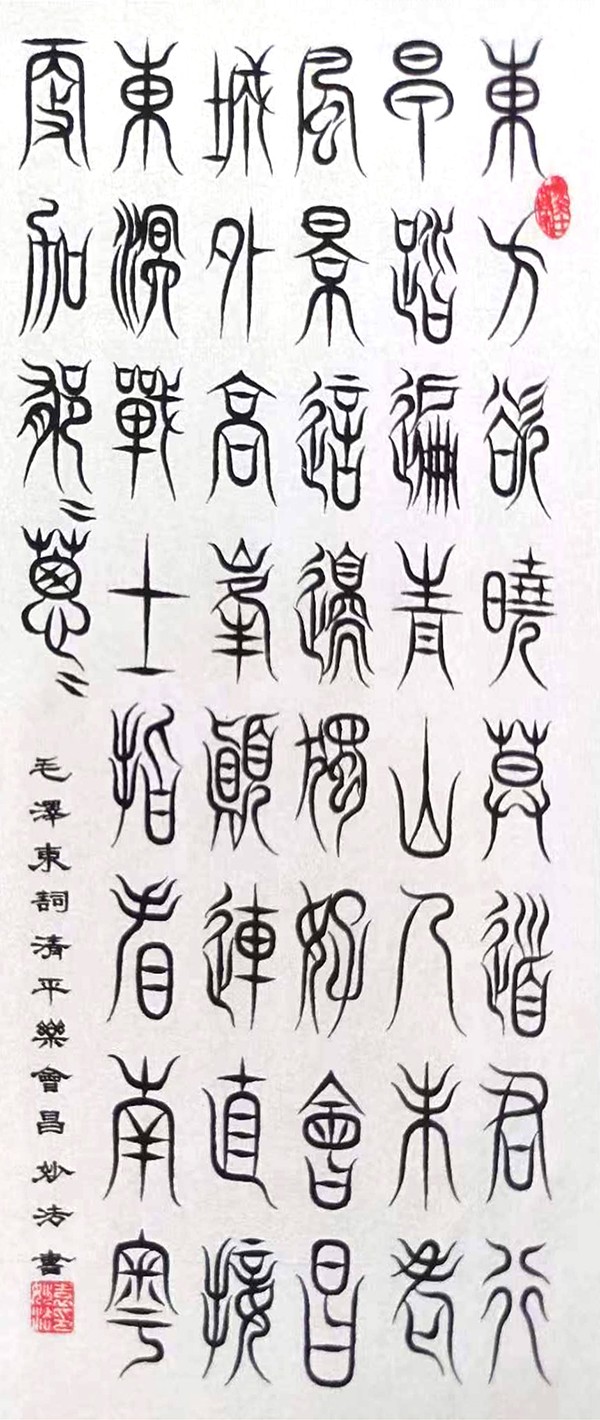 東方欲曉莫道君行
早踏遍青山人未老
風景這邊獨好會昌
城外高峯顛連直接
東溟戰士指看南粵
更加郁〻蔥〻
毛澤東詞清平樂會昌妙法書